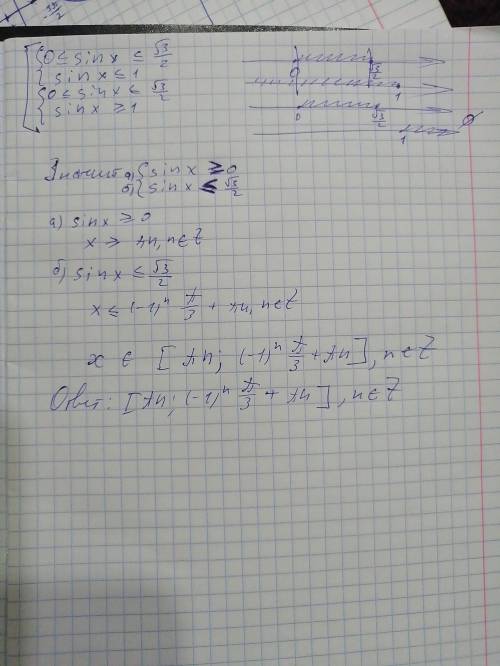 -3π/2
0 ≤ sin x ≤ √3/2
sin x ≤ 1
0 ≤ sin x ≤ √3/2
sin x ≥ 1
0 √3/2
1
0 √3/2
1 ∅
Значит а) { sin x ≥ 0
б) { sin x ≤ √3/2
а) sin x ≥ 0
x ≥ πn, n∈Z
б) sin x ≤ √3/2
x ≤ (-1)ⁿ π/3 + πn, n∈Z
x ∈ [πn; (-1)ⁿ π/3 + πn], n∈Z
Ответ: [πn; (-1)ⁿ π/3 + πn], n∈Z